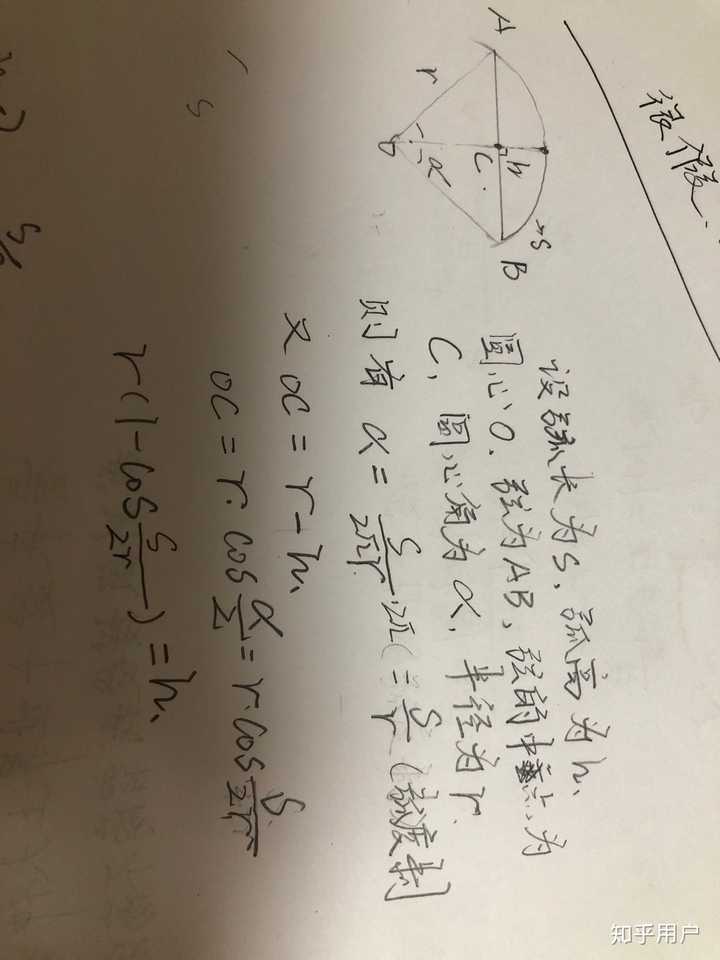 很假.
A
r
O
α
C
h
S
B
设弧长为S,弧高为h.
圆心O.弦为AB,弦的中点为
C,圆心角为α,半径为r.
则有 α = S/2πr · 2π = S/r (弧度制)
又 OC = r - h.
OC = r · cos α/2 = r · cos S/2r
r(1 - cos S/2r) = h.
S
知乎用户